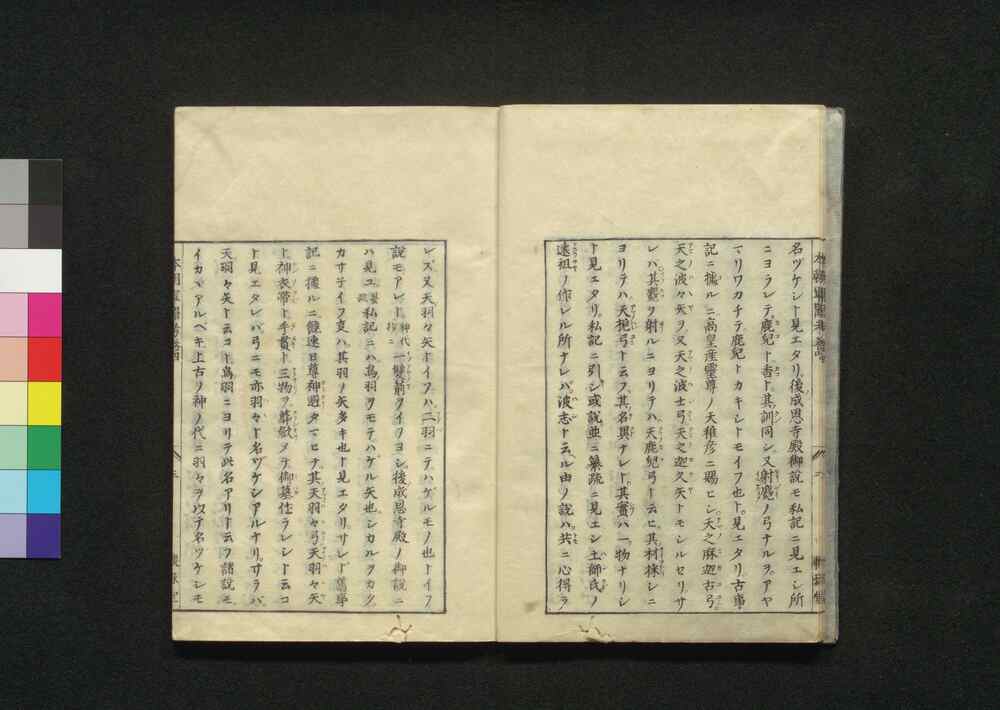 名ヅケシト見エタリ後成恩寺殿御説モ私記ニ見エシ所
ニヨラレテ鹿兒ト香ト其訓同シ又射麑ノ弓ナルヲアヤ
マリワカチテ鹿兒トカキシトモイフ也ト見エタリ古事
記ニ據ルニ高皇産靈尊ノ天稚彦ニ賜ヒシ天之麻迦古弓
天之波々矢ヲ又天之波士弓天之迦久矢トモシルセリサ
レバ其麑ヲ射ルニヨリテハ天鹿兒弓ト云ヒ其材楺シニ
ヨリテハ天梔弓ト云フ其名異ナレド其實ハ一物ナリシ
ト見エタリ私記ニ引シ或説並ニ纂疏ニ見エシ土師氏ノ
遠祖ノ作レル所ナレバ波志ト云ル由ノ説ハ共ニ心得ラ
レズ又天羽々矢トイフハ二羽ニテハゲルモノ也トイフ
説モアレド神代一雙箭ヲイフヨシ後成恩寺殿ノ御説ニ
ハ見ユ私記ニハ鳥羽ヲモテハゲル矢也シカルヲカタ
カサ子イフ叓ハ其羽ノ矢多キ也ト見エタリサレド舊事
記ニ據ルニ饒速日尊神避タマヒテ其天羽々弓天羽々矢
ト神衣帶ト手貫ト三物ヲ葬斂メテ御墓仕ラレシト云コ
ト見エタレバ弓ニモ亦羽々ト名ヅケシアルナリサラバ
天羽々矢ト云コト鳥羽ニヨリテ此名アリト云フ諸説モ
イカヾアルベキ上古ノ神ノ代ニ羽々ヲ以テ名ヅケシモ